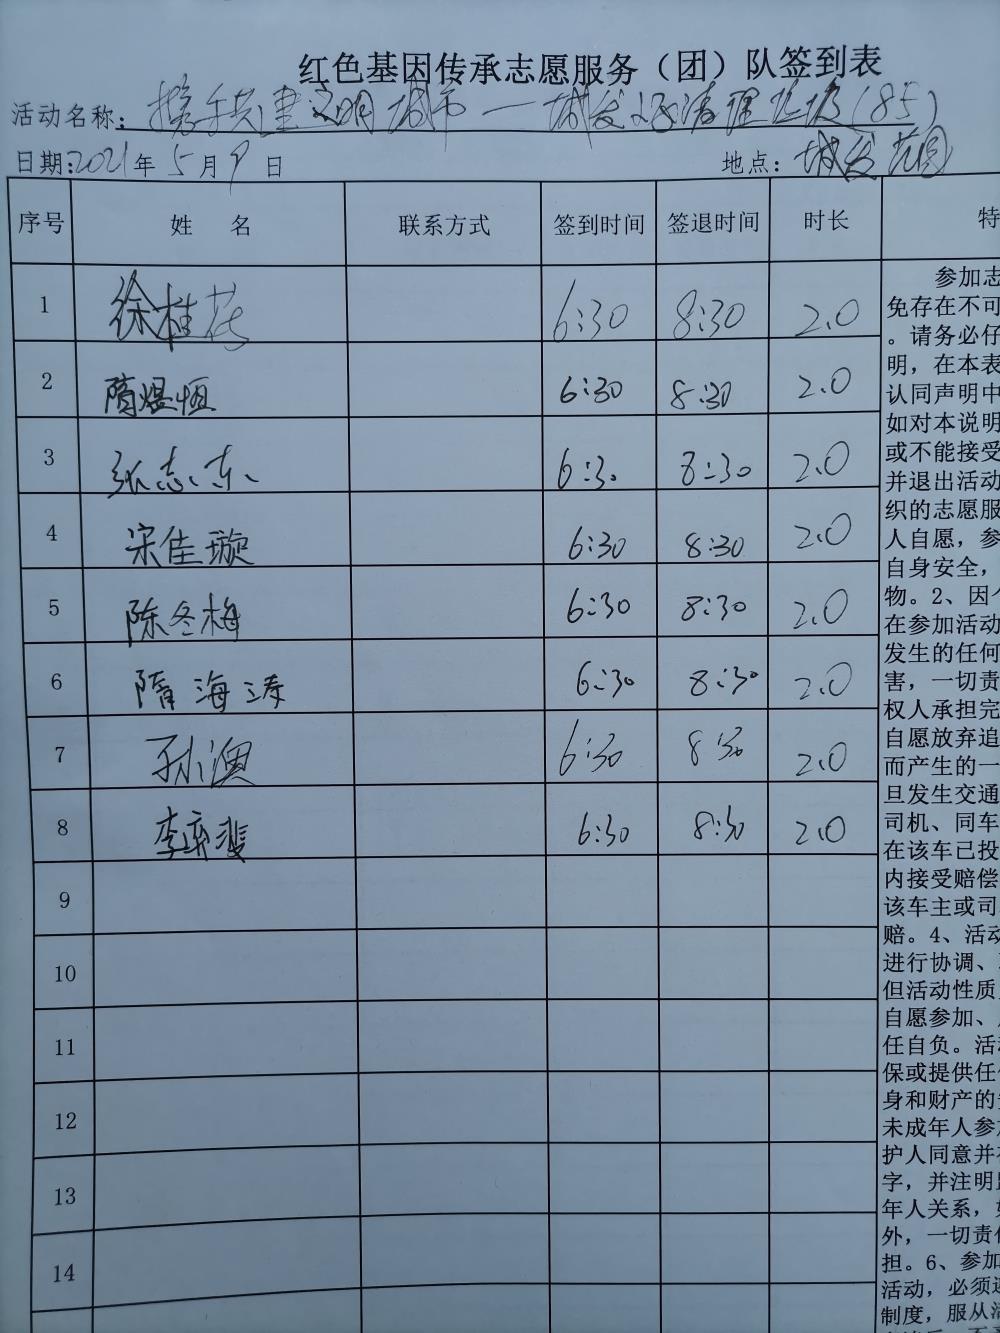 红色基因传承志愿服务（团）队签到表
活动名称：携手共建文明城市一城发 清理垃圾(85)
日期:2021年5月9日 地点：城发花园
序号 姓 名 联系方式 签到时间 签退时间 时长 特
1 徐桂花 6:30 8:30 2.0
2 隋煜恒 6:30 8:30 2.0
3 张志东 6:30 8:30 2.0
4 宋佳璇 6:30 8:30 2.0
5 陈冬梅 6:30 8:30 2.0
6 隋海涛 6:30 8:30 2.0
7 孙澳 6:30 8:30 2.0
8 李 斐 6:30 8:30 2.0
9
10
11
12
13
14
参加志
免存在不可
。请务必仔
明，在本表
认同声明中
如对本说明
或不能接受
并退出活动
织的志愿服
人自愿，参
自身安全，
物。2、因个
在参加活动
发生的任何
害，一切责
权人承担完
自愿放弃追
而产生的一
旦发生交通
司机、同车
在该车已投
内接受赔偿
该车主或司
赔。4、活动
进行协调、
但活动性质
自愿参加、
任自负。活动
保或提供任何
身和财产的
未成年人参加
护人同意并
字，并注明
年人关系，
外，一切责任
担。6、参加
活动，必须
制度，服从活